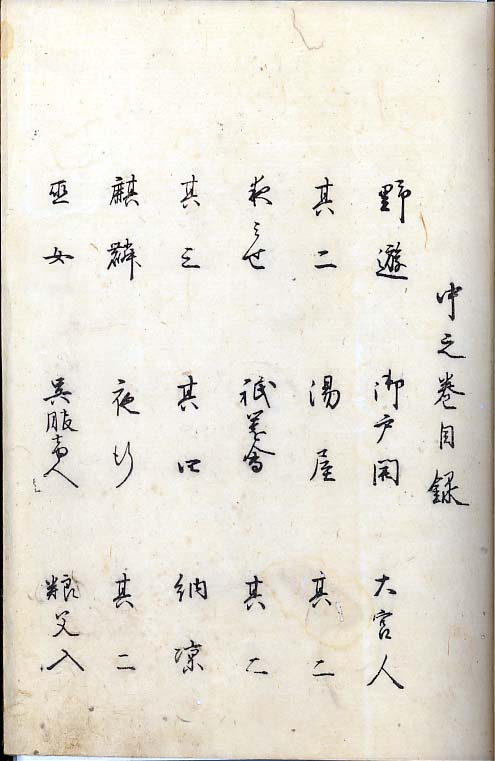 中之巻目録
野遊 御戸開 大宮人
其二 湯屋 其二
夜みせ 祇薗會 其二
其三 其四 納凉
麒麟 夜行 其二
巫女 呉服商人 粮父入